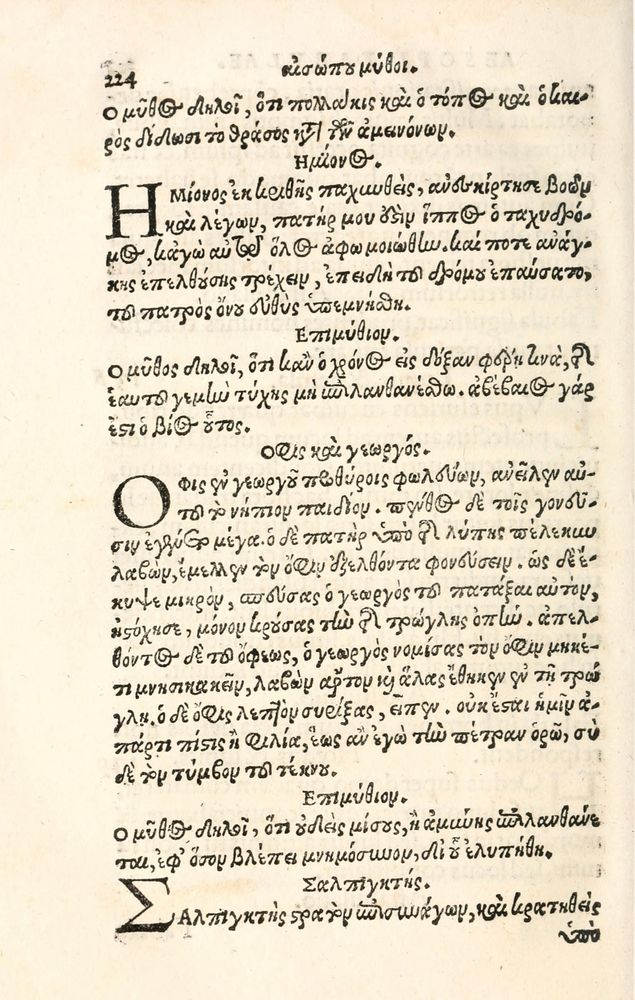 224 αἰσώπου μῦθοι.
Ο μῦθος δηλοῖ, ὅτι πολλάκις καὶ ὁ τόπος καὶ ὁ και-
ρὸς δίδωσι τὸ θράσος κατὰ τῶν ἀμεινόνων.
Ημίονος.
ΗΜίονος ἐκ κριθῆς παχυνθεὶς, ἀνεσκίρτησε βοῶν
καὶ λέγων, πατήρ μου ἐστὶν ἵππος ὁ ταχυδρό-
μος, κᾀγὼ αὐτῷ ὅλος ἀφωμοιώθην. καί ποτε ἀνάγ-
κης ἐπελθούσης τρέχειν, ἐπειδὴ τοῦ δρόμου ἐπαύσατο,
τοῦ πατρὸς ὄνου εὐθὺς ὑπεμνήσθη.
Επιμύθιον.
Ο μῦθος δηλοῖ, ὅτι κἂν ὁ χρόνος εἰς δόξαν φέρῃ τινὰ, τῆς
ἑαυτοῦ γε μὴν τύχης μὴ ἐπιλανθανέσθω. ἀβέβαιος γάρ
ἐστι ὁ βίος οὗτος.
Οφις καὶ γεωργός.
ΟΦις ἐν γεωργοῦ προθύροις φωλεύων, ἀνεῖλεν αὐ-
τοῦ τὸ νήπιον παιδίον. πένθος δὲ τοῖς γονεῦ-
σιν ἐγένετο μέγα. ὁ δὲ πατὴρ ὑπὸ τῆς λύπης πέλεκυν
λαβὼν, ἔμελλεν τὸν ὄφιν ἐξελθόντα φονεύσειν. ὡς δὲ ἔ-
κυψε μικρὸν, σπεύσας ὁ γεωργὸς τοῦ πατάξαι αὐτὸν,
ἠστόχησε, μόνον κρούσας τὴν τῆς τρώγλης ὀπήν. ἀπελ-
θόντος δὲ τοῦ ὄφεως, ὁ γεωργὸς νομίσας τὸν ὄφιν μηκέ-
τι μνησικακεῖν, λαβὼν ἄρτον καὶ ἅλας ἔθηκεν ἐν τῇ τρώ
γλῃ. ὁ δὲ ὄφις λεπτὸν συρίξας, εἶπεν. οὐκ ἔσται ἡμῖν ἀ-
πάρτι πίστις ἢ φιλία, ἕως ἂν ἐγὼ τὴν πέτραν ὁρῶ, σὺ
δὲ τὸν τύμβον τοῦ τέκνου.
Επιμύθιον.
Ο μῦθος δηλοῖ, ὅτι οὐδεὶς μίσους, ἢ ἀμύνης ἐπιλανθάνε
ται, ἐφ' ὅσον βλέπει μνημόσυνον, δι' οὗ ἐλυπήθη.
Σαλπιγκτής.
ΣΑλπιγκτὴς στρατὸν ἐπισυνάγων, καὶ κρατηθεὶς
ὑπὸ